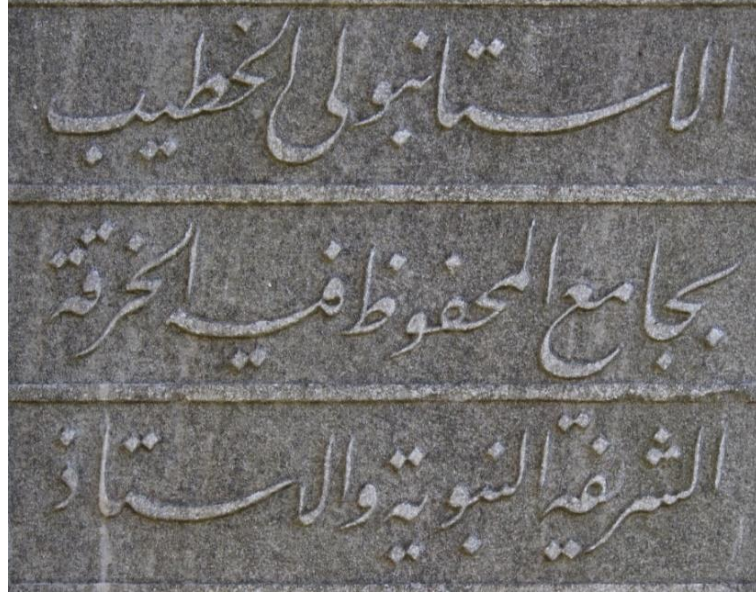 الاستانبولى الخطيب
بجامع المحفوظ فيه الخرقة
الشريفة النبوية والاستاذ